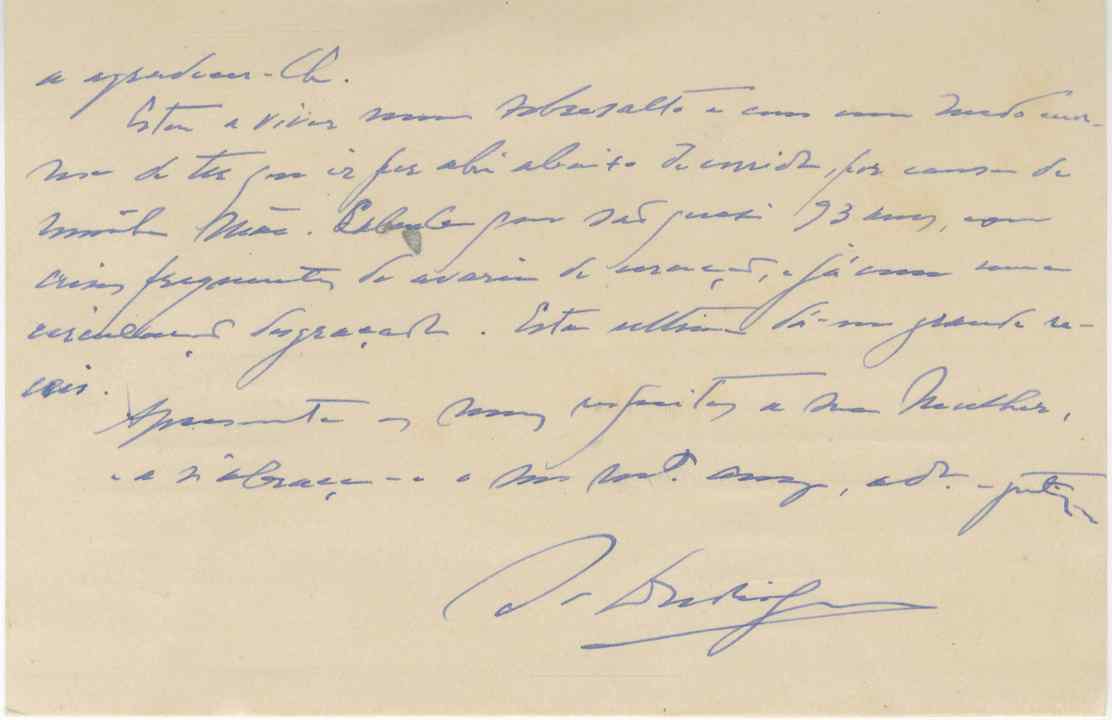 a agradecer-lh.
Estou a viver num sobresalto e com um medo enor-
me de ter que ir por ahi abaixo de corrida, por causa de
minha Mãe. que são quasi 93 anos, com
crises frequentes de avaria de coração, e já com uma
circulação desgraçada. Esta ultima dá-me grande re-
ceio.
Apresente os meus respeitos a sua Mulher,
e a si abraça-o o seu mt.º amg.,